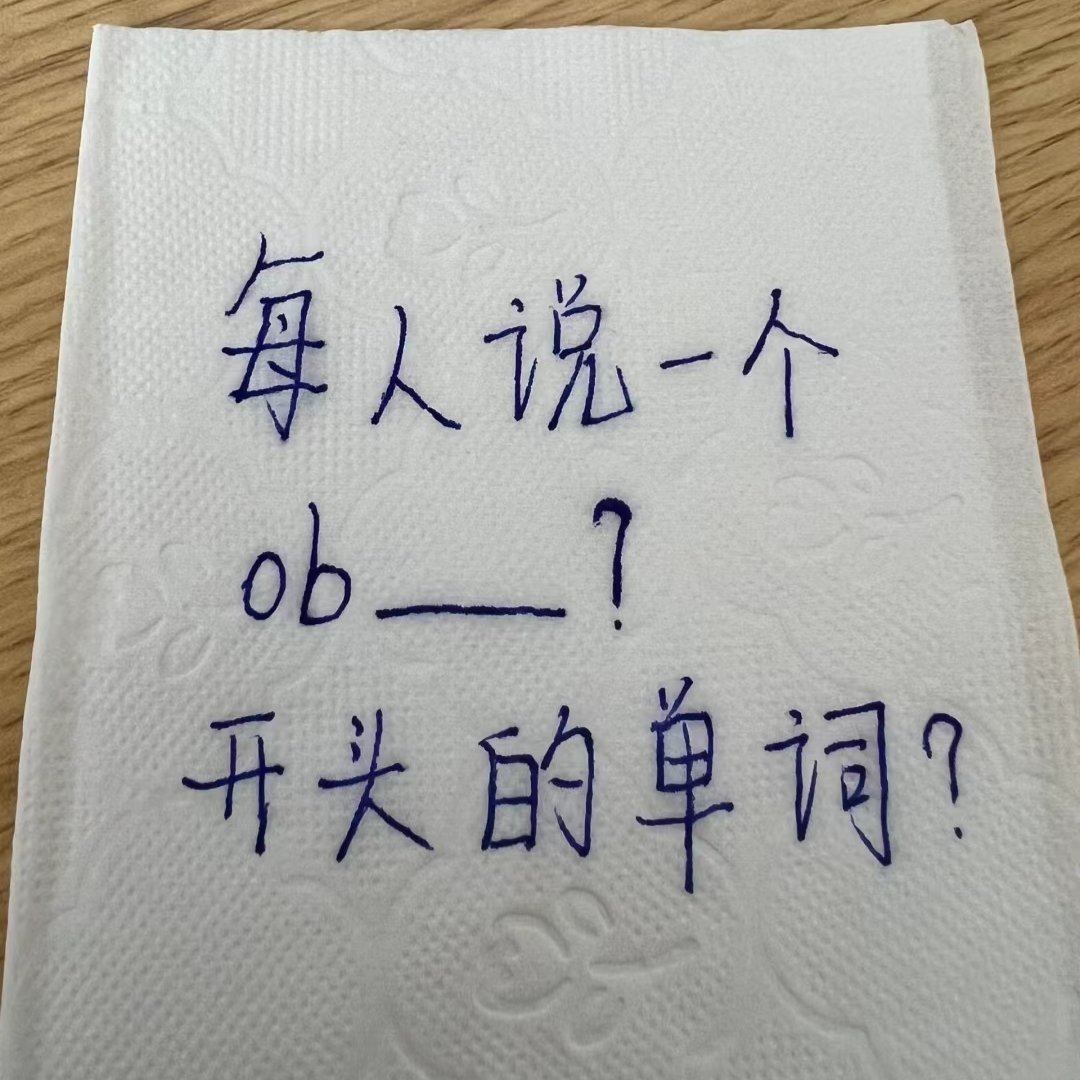 每人说一个
ob___?
开头的单词?